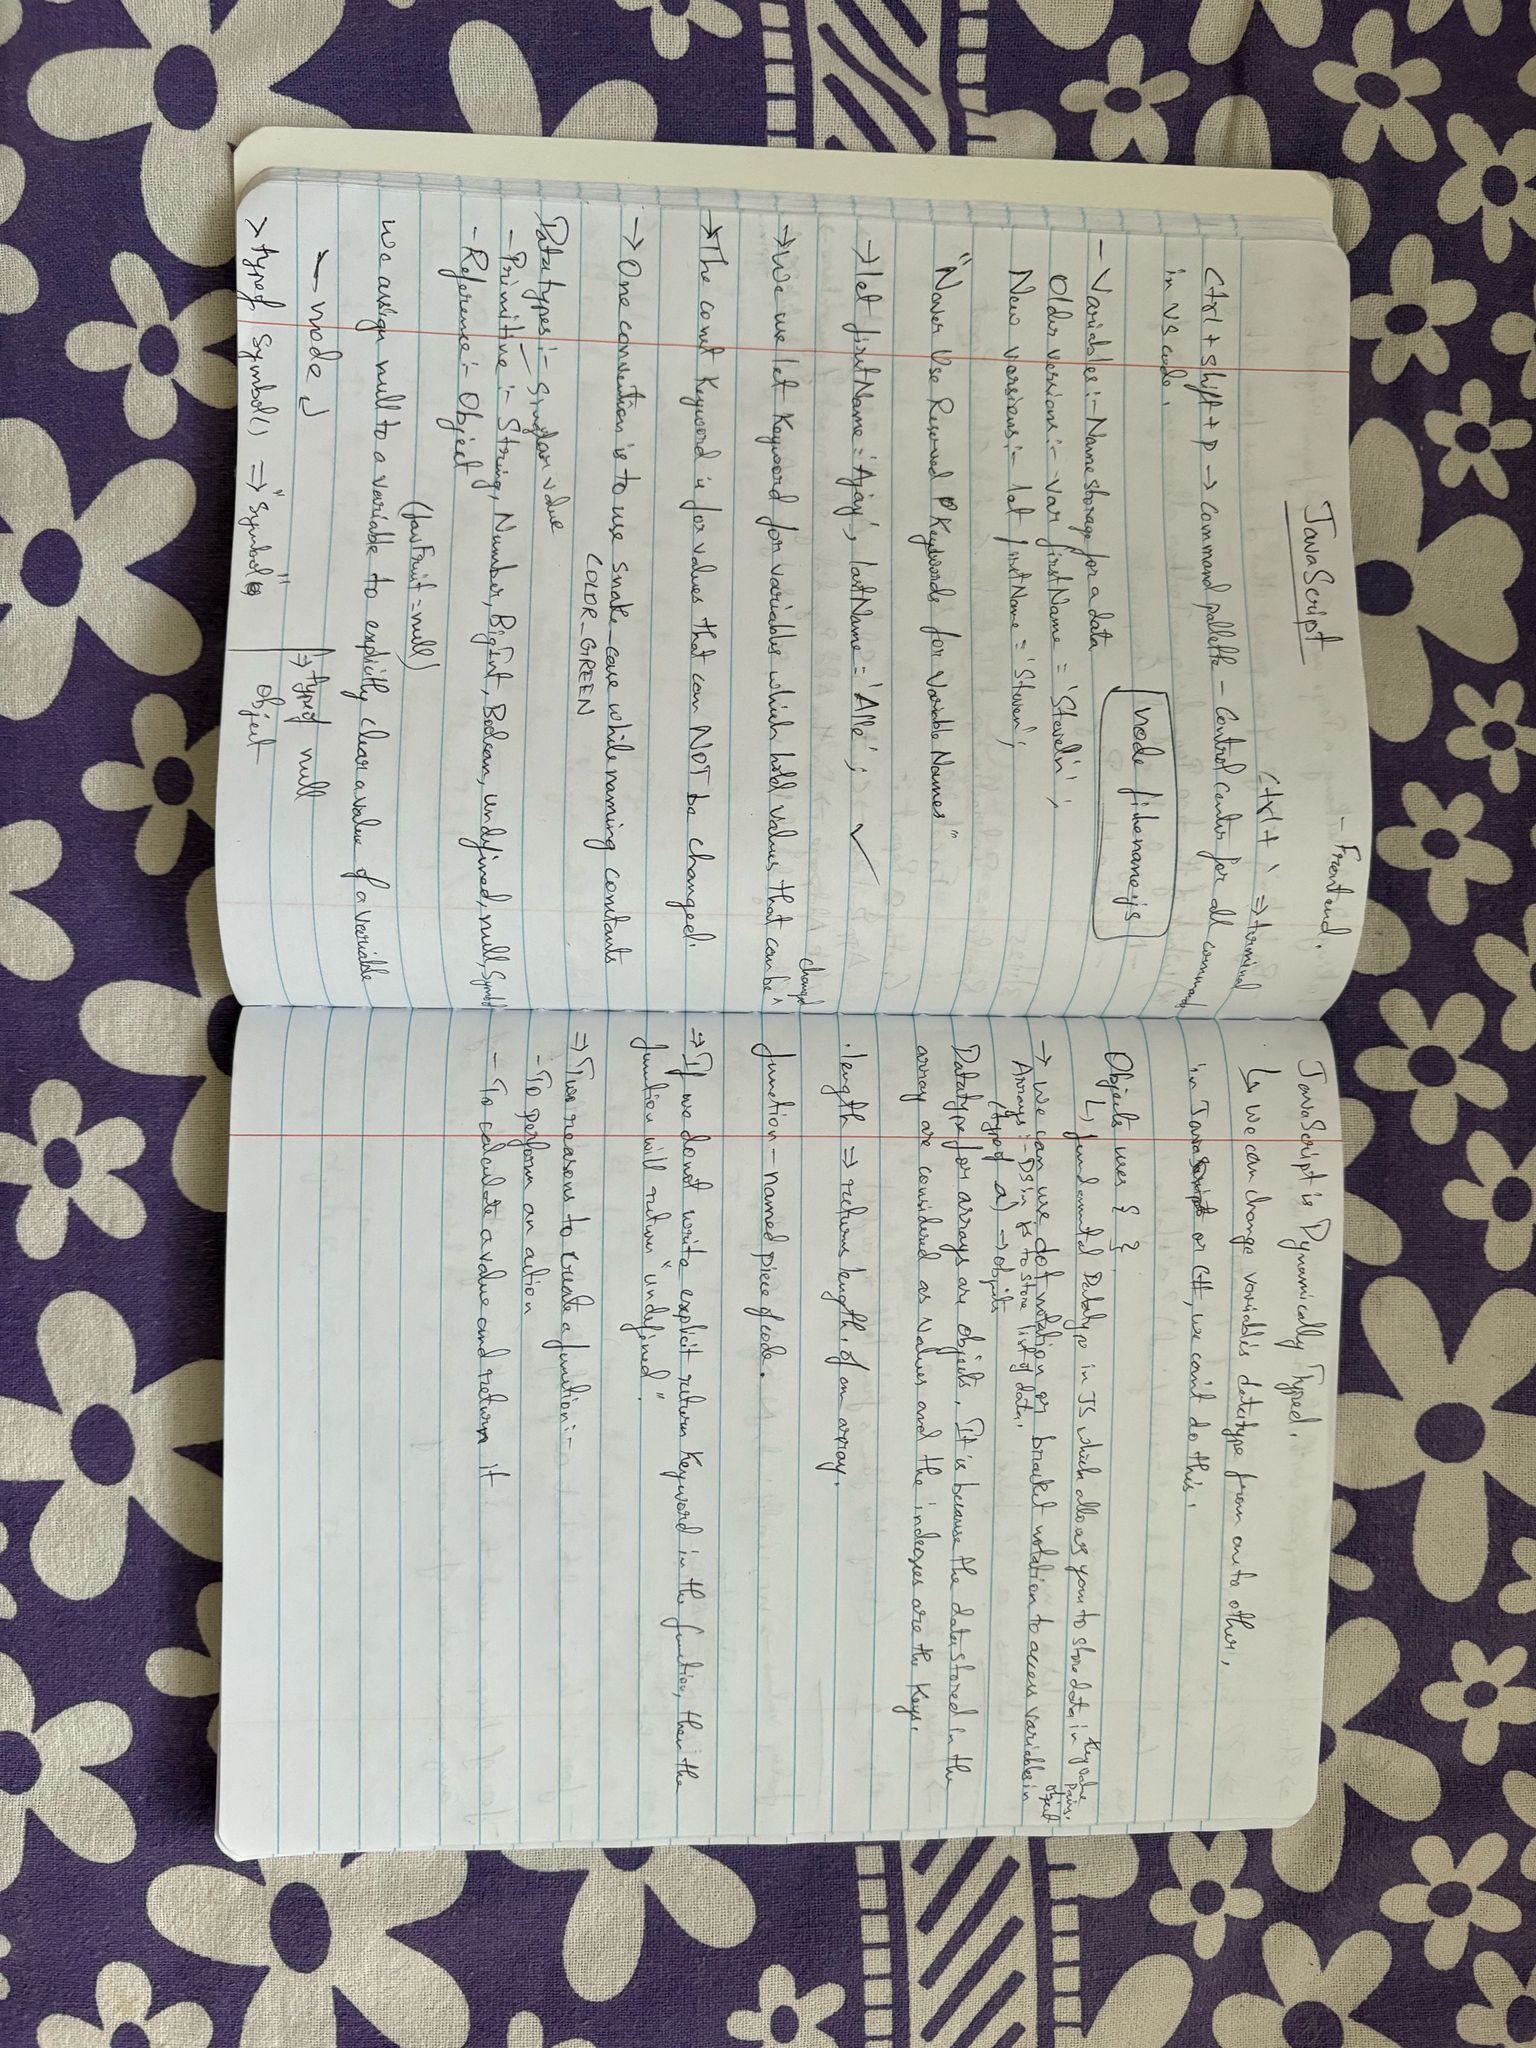 JavaScript
- Frontend.
Ctrl + ` => terminal
Ctrl + shift + p → command pallette - Control center for all commands
in VS code.
node filename.js
- Variables :- Name storage for a data
Older versions :- var firstName = 'Steveln';
New versions :- let firstName = 'Steven';
"Never Use Reserved Keywords for Variable Names"
→ let firstName = 'Ajay', lastName = 'Alle'; ✓
→ We use let Keyword for variables which hold values that can be ^ changed
→ The const Keyword is for values that can NOT be changed.
→ One convention is to use snake_case while naming constants
COLOR_GREEN
Datatypes :- Singlar value
- Primitive :- String, Number, BigInt, Boolean, undefined, null, Symbol
- Reference :- Object
(favFruit = null)
we assign null to a variable to explicitly clear a value of a variable
- node
> typeof Symbol() => "symbol"
=> typeof null
object
JavaScript is Dynamically Typed.
↳ we can change variables datatype from one to other,
in Java or C#, we can't do this.
Objects uses { }
↳ fundamental Datatype in JS which allows you to store data in Key value Pairs.
→ we can use dot notation or bracket notation to access variables in object
Arrays :- DS in js to store list of data.
(typeof a) → objects
Datatype for arrays are objects. It is because the data stored in the
array are considered as values and the indexes are the Keys.
.length => returns length of an array.
function - named piece of code.
=> If we do not write explicit return Keyword in the function, then the
function will return "undefined".
=> Two reasons to create a function :-
- To perform an action
- To calculate a value and return it